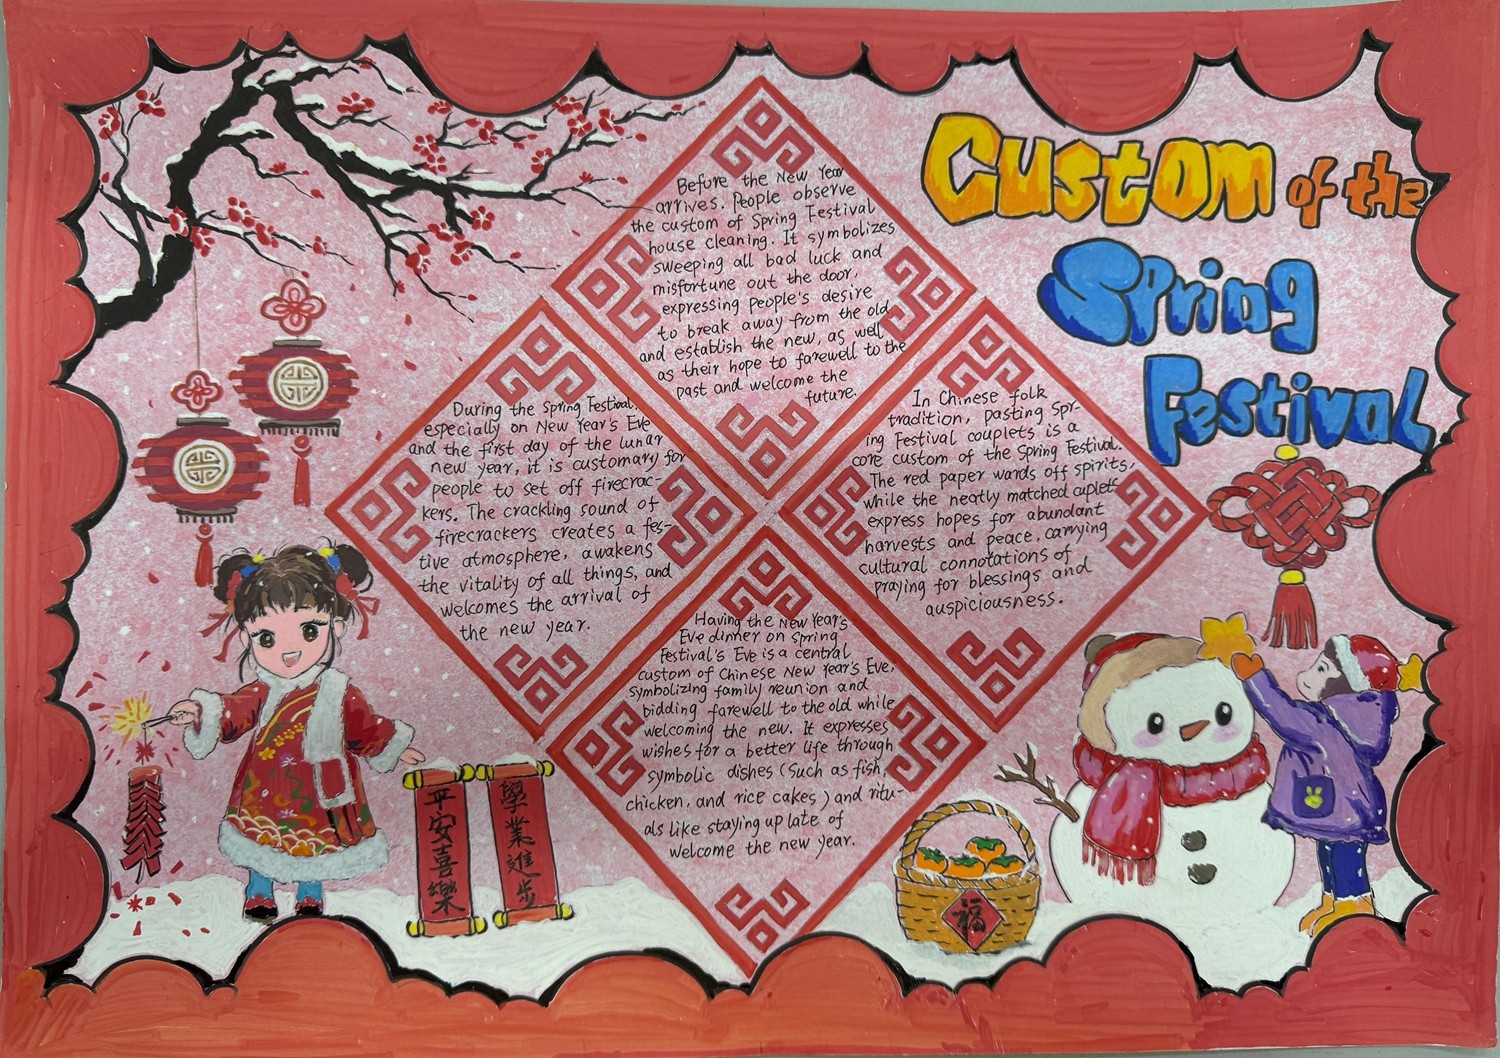 Custom of the
Spring
Festival
Before the New Year
arrives. People observe
the custom of Spring Festival
house cleaning. It symbolizes
sweeping all bad luck and
misfortune out the door,
expressing people's desire
to break away from the old
and establish the new, as well
as their hope to farewell to the
past and welcome the
future.
During the Spring Festival,
especially on New Year's Eve
and the first day of the lunar
new year, it is customary for
people to set off firecrac-
kers. The crackling sound of
firecrackers creates a fes-
tive atmosphere, awakens
the vitality of all things, and
welcomes the arrival of
the new year.
In Chinese folk
tradition, pasting Spr-
ing Festival couplets is a
core custom of the Spring Festival.
The red paper wards off spirits,
while the neatly matched cuplets
express hopes for abundant
harvests and peace, carrying
cultural connotations of
praying for blessings and
auspiciousness.
Having the New Year's
Eve dinner on Spring
Festival's Eve is a central
custom of Chinese New Year's Eve,
symbolizing family reunion and
bidding farewell to the old while
welcoming the new. It expresses
wishes for a better life through
symbolic dishes (Such as fish,
chicken, and rice cakes) and ritu-
als like staying up late of
welcome the new year.
平安喜樂
學業進步
福